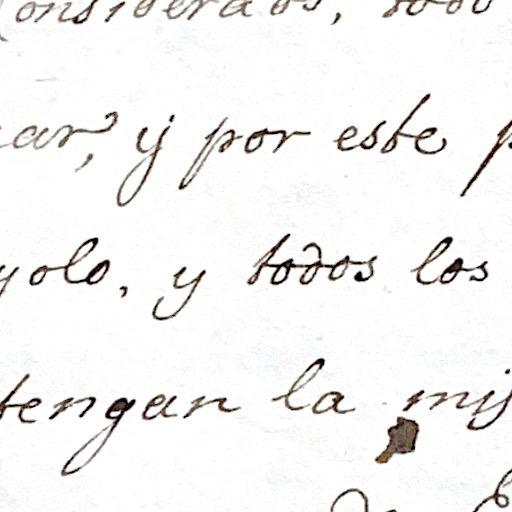 Considerados, todo
ar, ÿ por este p
yolo, y todos los
tengan la mis